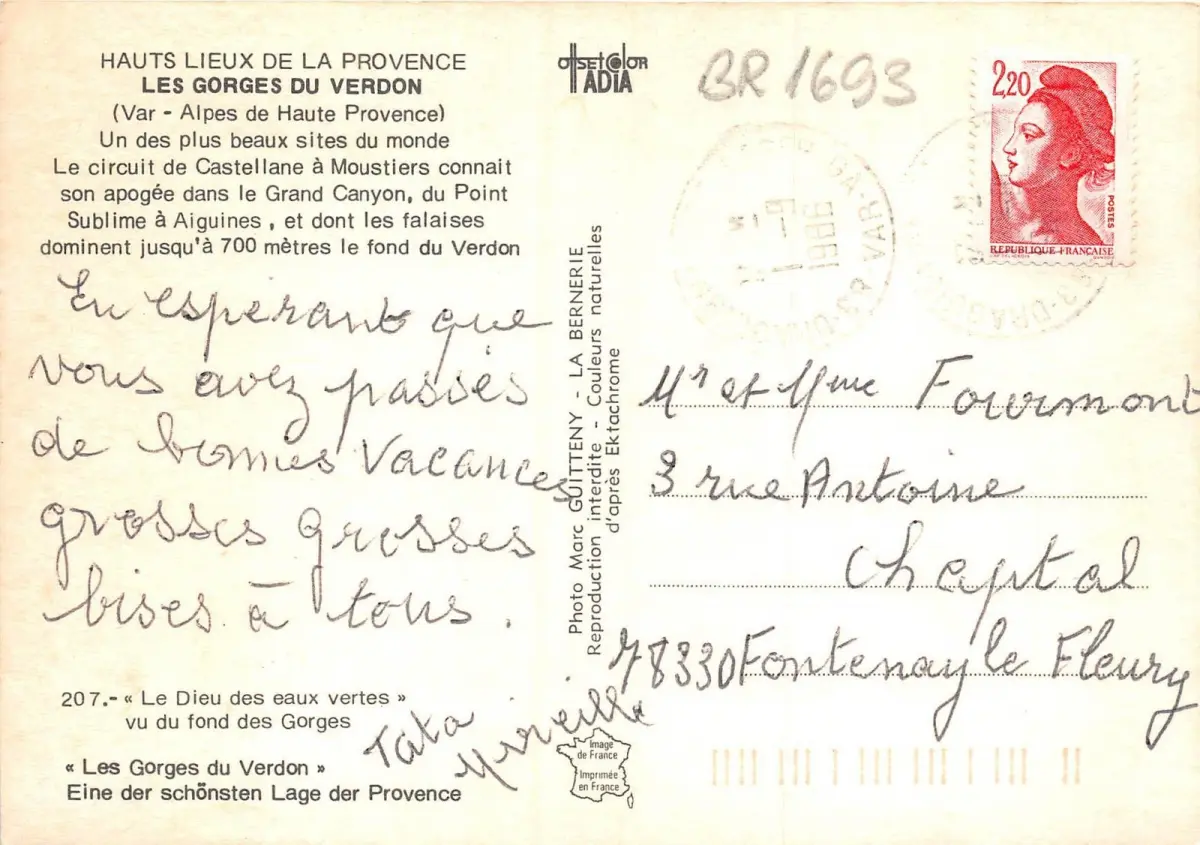 HAUTS LIEUX DE LA PROVENCE
LES GORGES DU VERDON
(Var - Alpes de Haute Provence)
Un des plus beaux sites du monde
Le circuit de Castellane à Moustiers connait
son apogée dans le Grand Canyon, du Point
Sublime à Aiguines, et dont les falaises
dominent jusqu'à 700 mètres le fond du Verdon
En espérant que
vous avez passés
de bonnes vacances
grosses grosses
bises à tous.
Tata
Mireille
207.- « Le Dieu des eaux vertes »
vu du fond des Gorges
« Les Gorges du Verdon »
Eine der schönsten Lage der Provence
offset color
ADIA
Photo Marc GUITTENY - LA BERNERIE
Reproduction interdite - Couleurs naturelles
d'après Ektachrome
Image
de France
Imprimée
en France
BR 1693
2,20
POSTES
REPUBLIQUE FRANÇAISE
1986
Mr et Mme Fourmont
3 rue Antoine
Chaptal
78330 Fontenay le Fleury